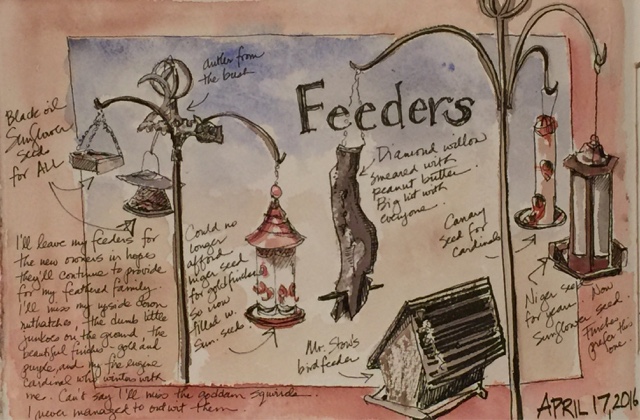 Feeders
antler from
the bush
Black oil
Sunflower
seed
for ALL
Diamond willow
smeared with
peanut butter.
Big hit with
everyone.
Canary
seed for
Cardinals
Could no
longer
afford
niger seed
for goldfinches
so now
filled w.
Sun. seeds
Niger seed
for years
Now
Sunflower seed.
Finches
prefer this
one.
Mr. Ston's
birdfeeder
I'll leave my feeders for
the new owners in hope
they'll continue to provide
for my feathered family.
I'll miss my upside down
nuthatches, the dumb little
juncos on the ground, the
beautiful finches - gold and
purple, and my the
cardinal who winters with
me. Can't say I'll miss the goddam squirrels.
I never managed to outwit them
APRIL 17, 201